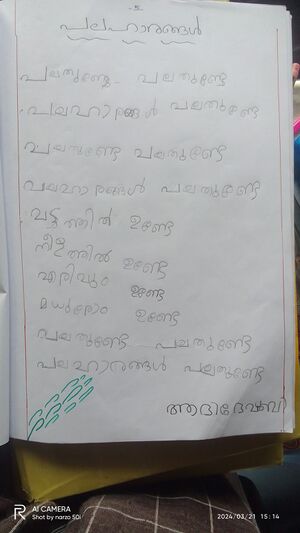 -5-
പലഹാരങ്ങൾ
പലതുണ്ടേ - പലതുണ്ടേ
പലഹാരങ്ങൾ പലതുണ്ടേ
പലതുണ്ടേ പലതുണ്ടേ
പലഹാരങ്ങൾ പലതുണ്ടേ
വട്ടത്തിൽ ഉണ്ടേ
നീളത്തിൽ ഉണ്ടേ
എരിവും ഉണ്ടേ
മധുരോം ഉണ്ടേ
പലതുണ്ടേ പലതുണ്ടേ
പലഹാരങ്ങൾ പലതുണ്ടേ
AI CAMERA
Shot by narzo 50i
2024/03/21 15:14